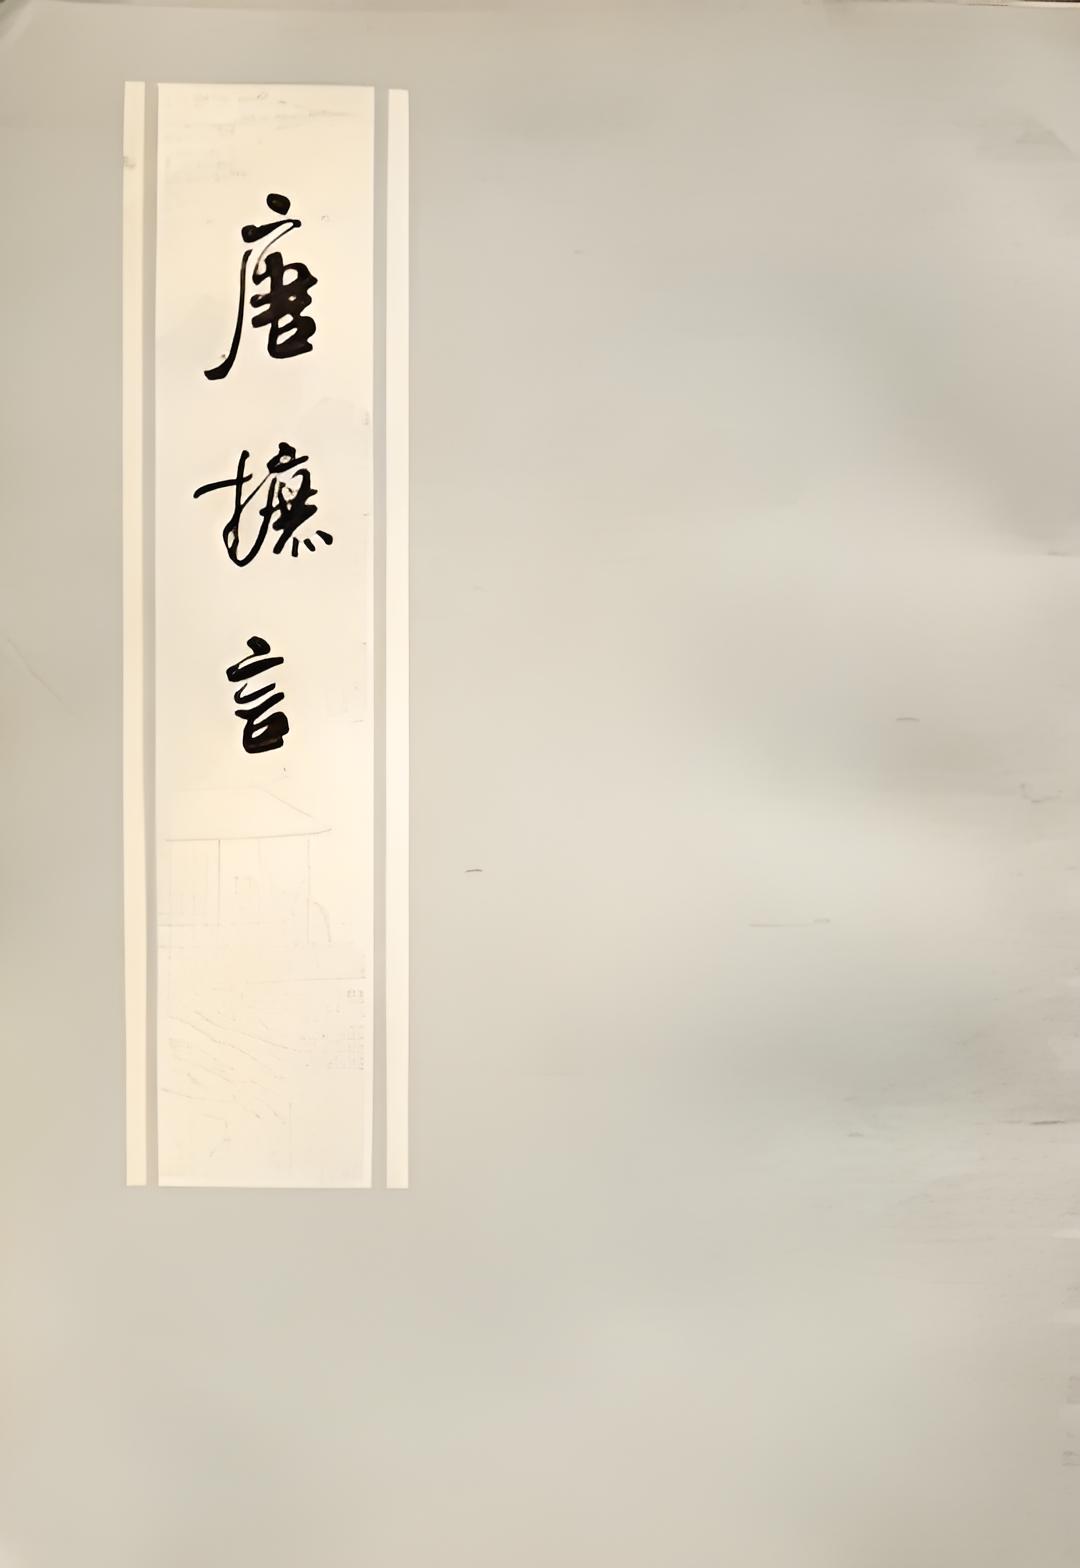 唐摭言